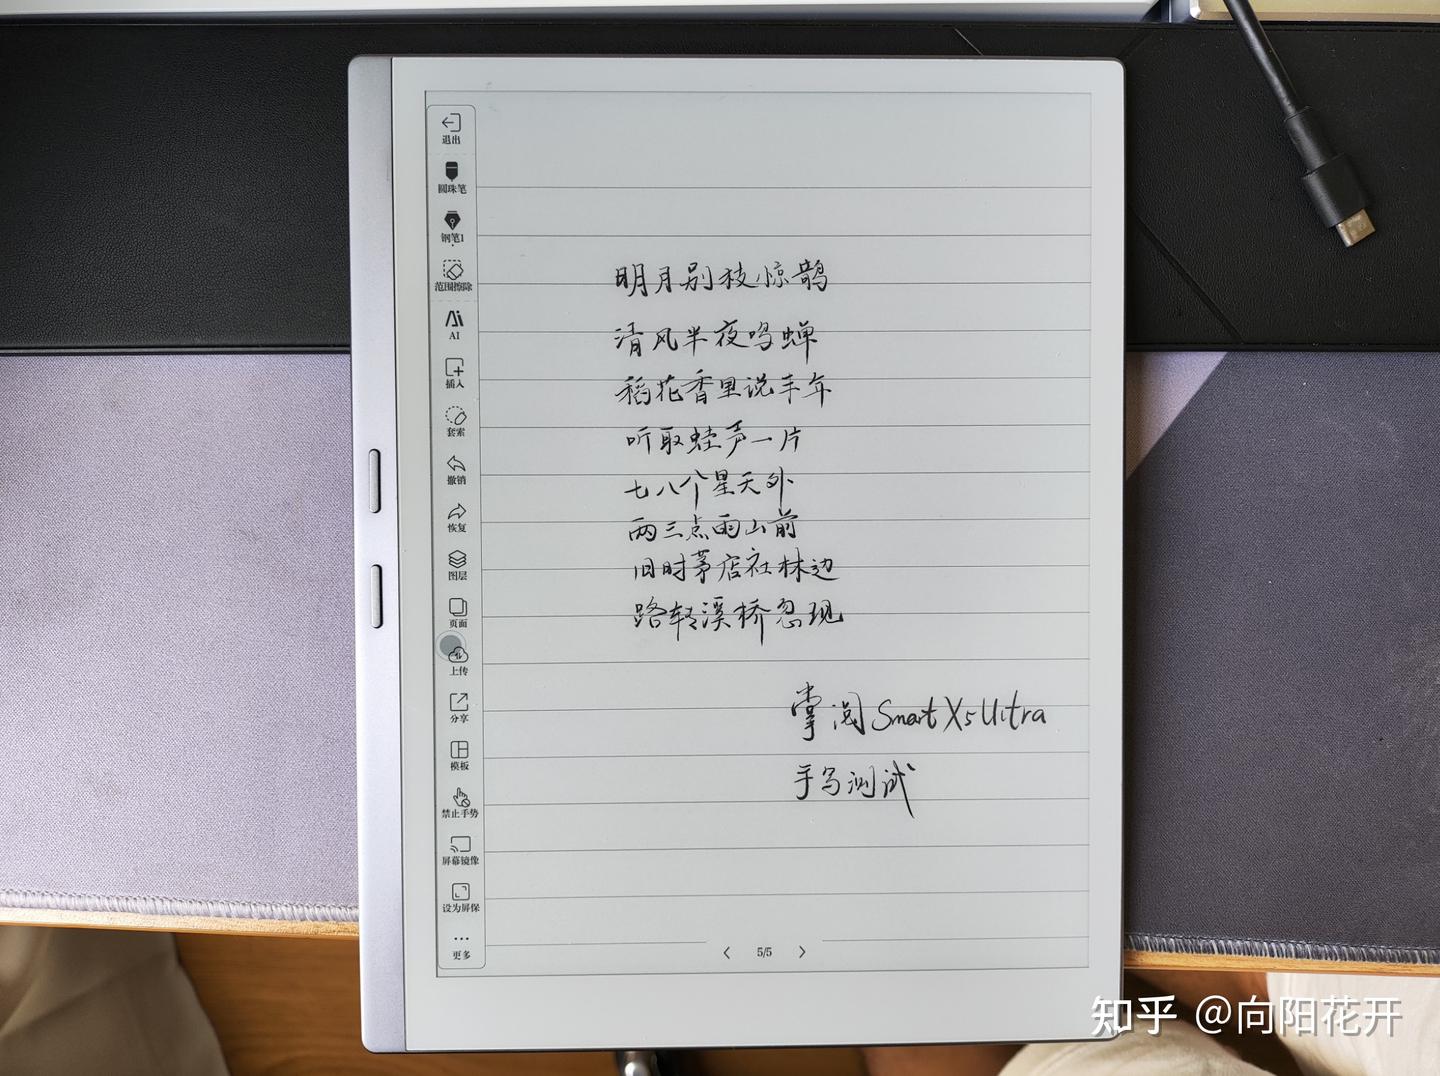 退出
圆珠笔
钢笔1
范围擦除
AI
插入
套索
撤销
恢复
图层
页面
上传
分享
模板
禁止手势
屏幕镜像
设为屏保
更多
明月别枝惊鹊
清风半夜鸣蝉
稻花香里说丰年
听取蛙声一片
七八个星天外
两三点雨山前
旧时茅店社林边
路转溪桥忽现
掌阅 Smart X5 Ultra
手写测试
5/5
知乎 @向阳花开